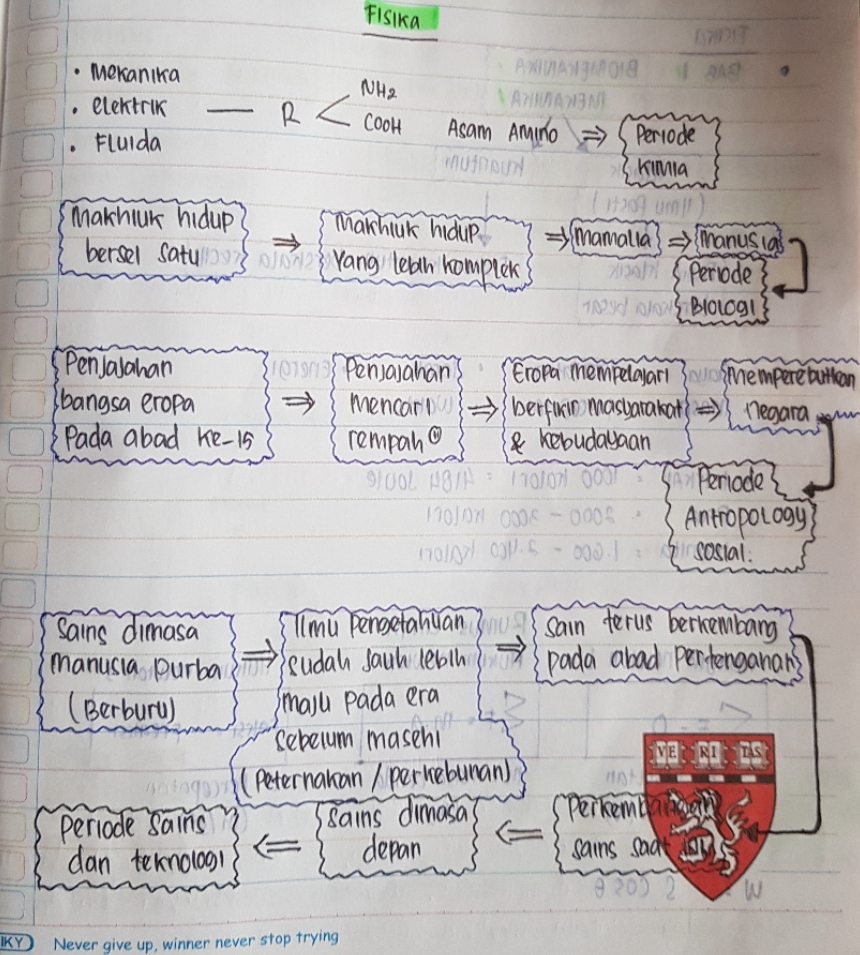 FISIKA
• Mekanika
• elektrik — R < NH2
COOH Asam Amino ⇒ Periode
• Fluida
Kimia
Makhluk hidup
bersel satu
⇒ Makhluk hidup
yang lebih komplek
⇒ Mamalia ⇒ Manusia
Periode
Biologi
Penjajahan
bangsa eropa
pada abad ke-15
⇒ Penjajahan
mencari
rempah²
⇒ Eropa mempelajari
berfikir masyarakat
& kebudayaan
⇒ Memperebutkan
negara
Periode
Antropology
sosial.
Sains dimasa
manusia purba
(Berburu)
⇒ Ilmu pengetahuan
sudah jauh lebih
maju pada era
sebelum masehi
(Peternakan / perkebunan)
⇒ sain terus berkembang
pada abad pertengahan
VE RI TAS
Perkembangan
sains saat
⇐ sains dimasa
depan
⇐ Periode sains
dan teknologi
IKY Never give up, winner never stop trying